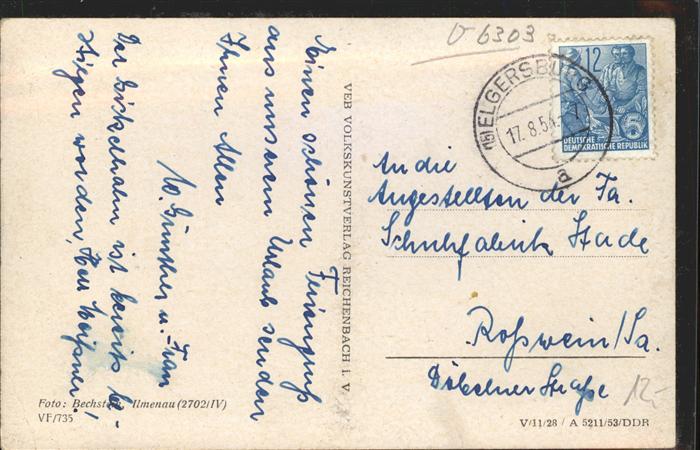 Einen schönen Feriengruß
aus unserem Urlaub senden
Ihnen Allen
W. Günther u. Frau
Der Kickelhahn ist bereits be-
stiegen worden, Herr Meißner!
VEB VOLKSKUNSTVERLAG REICHENBACH i. V.
V 6303
ELGERSBURG
17.8.54
a
12
5
DEUTSCHE
DEMOKRATISCHE REPUBLIK
An die
Angestellten der Fa.
Schuhfabrik Stade
Roßwein/Sa.
Döbelner Straße
12,-
Foto: Bechstein, Ilmenau (2702/IV)
VF/735
V/11/28 / A 5211/53/DDR